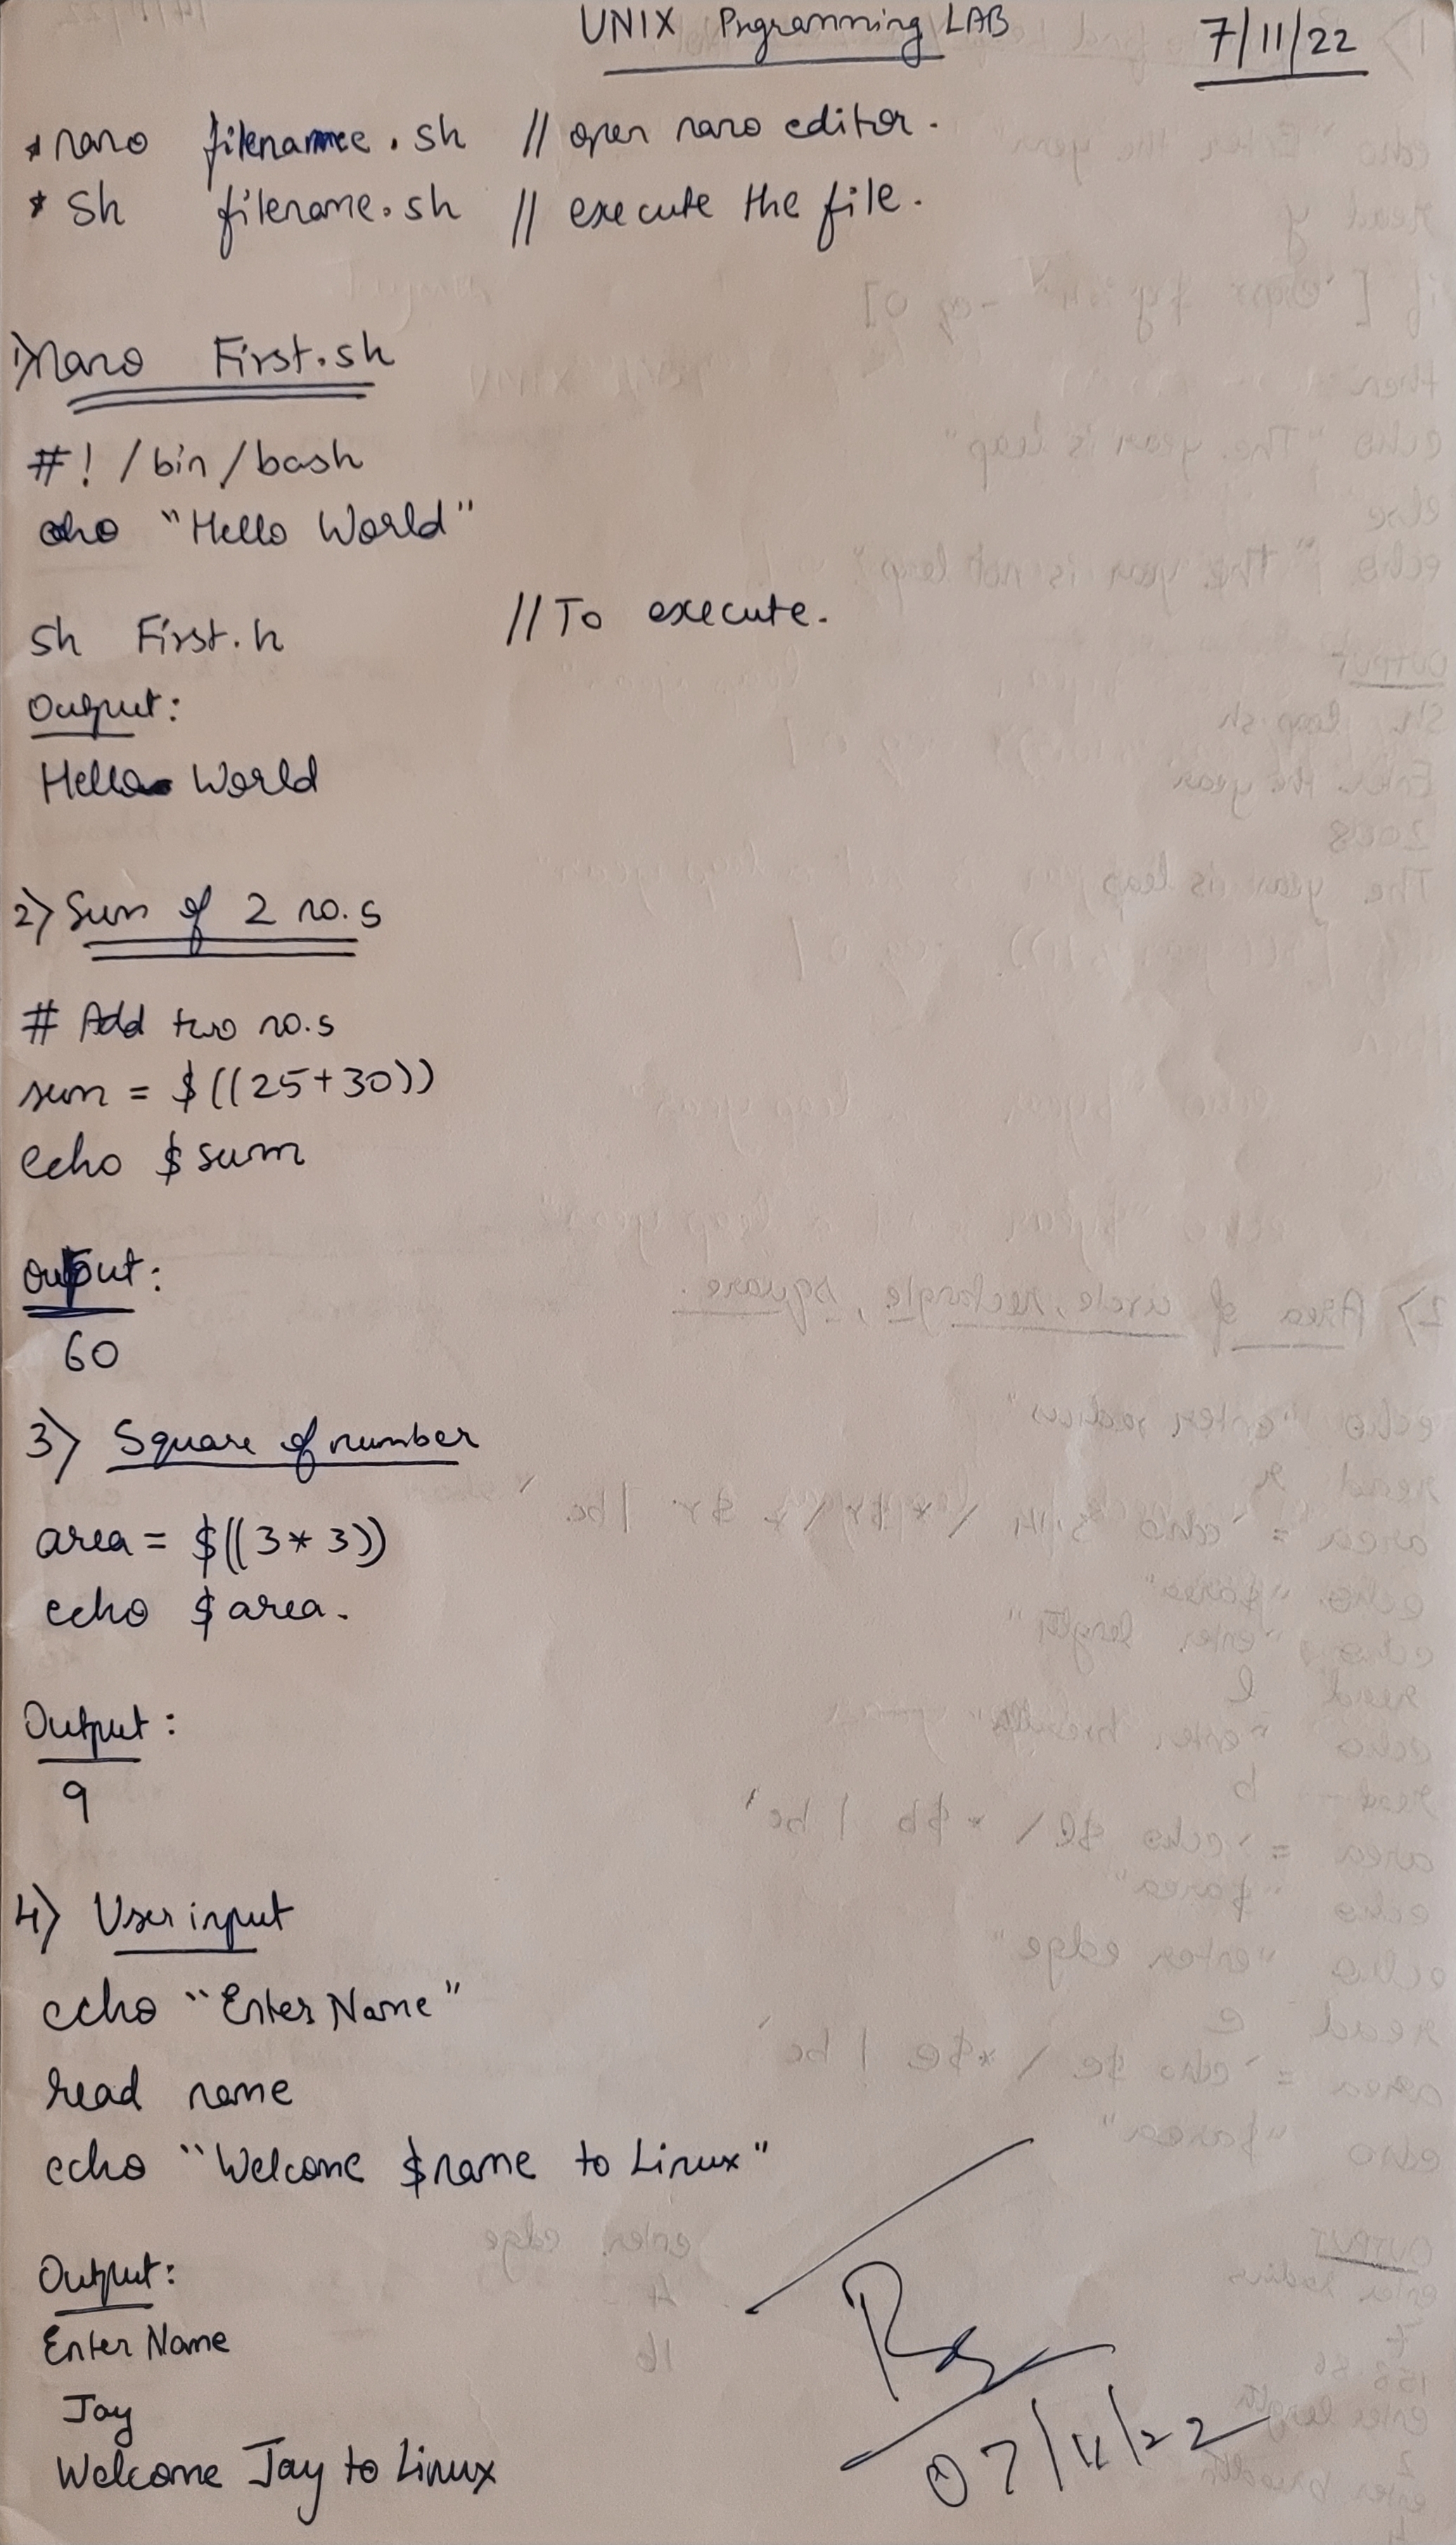 UNIX Prgramming LAB 7/11/22
* nano filename.sh // open nano editor.
* Sh filename.sh // execute the file.
1) nano First.sh
#! /bin/bash
echo "Hello World"
sh First.h // To execute.
Output:
Hello World
2) Sum of 2 no.s
# Add two no.s
sum = $((25+30))
echo $sum
Output:
60
3) Square of number
area = $((3*3))
echo $area.
Output:
9
4) User input
echo "Enter Name"
read name
echo "Welcome $name to Linux"
Output:
Enter Name
Jay
Welcome Jay to Linux
07/11/22